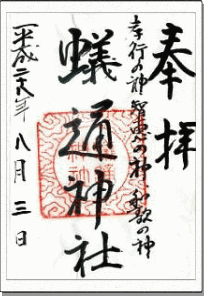 奉拝
孝行の神 智恵の神 和歌の神
蟻通神社
平成二十八年八月三日